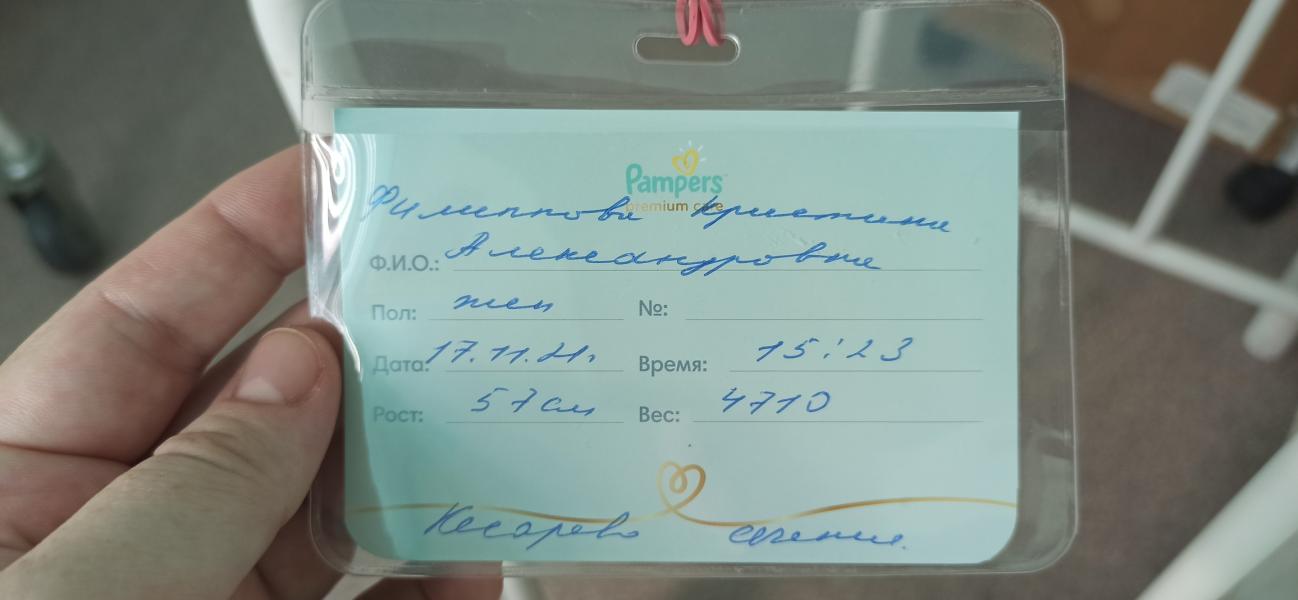 Pampers
premium care
Филиппова Кристина
Ф.И.О.: Александровна
Пол: жен №:
Дата: 17.11.21г. Время: 15:23
Рост: 57см Вес: 4710
Кесарево сечение.